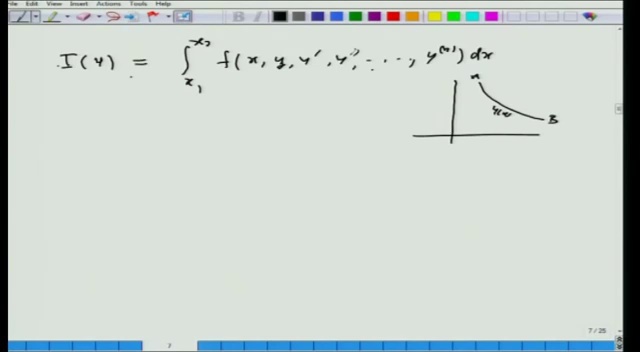 File Edit View Insert Actions Tools Help
I(y) = ∫_{x₁}^{x₂} f(x, y, y', y'', ..., y⁽ⁿ⁾) dx
A
y(x)
B
7 / 25
7